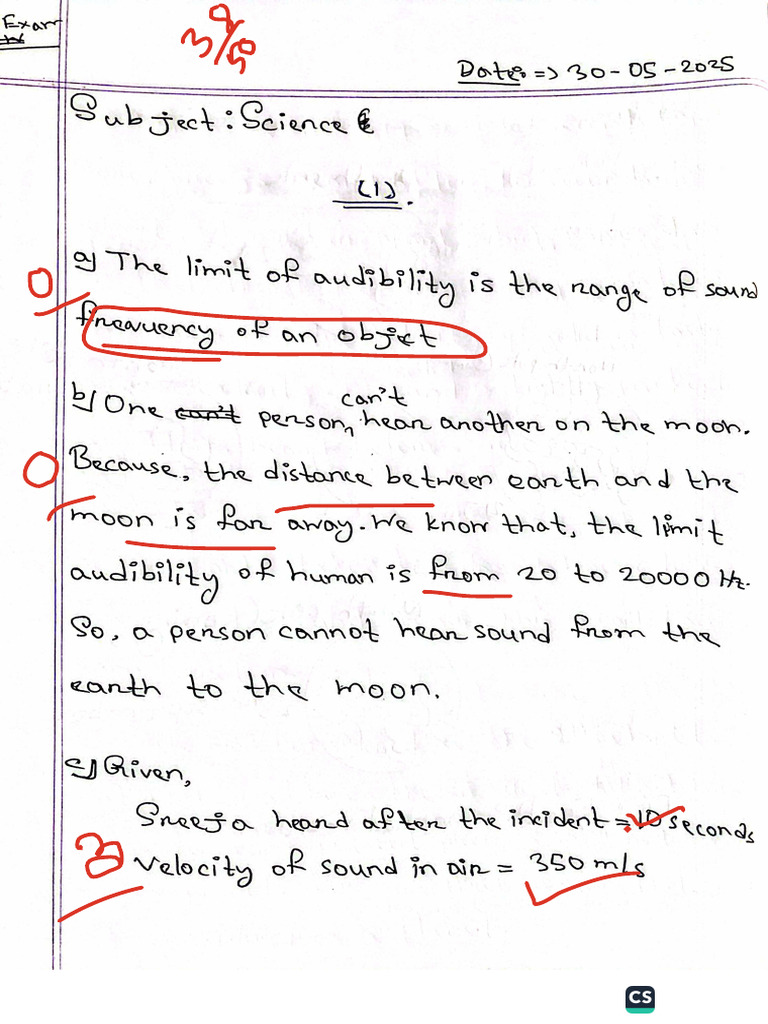 Exam
Date: => 30-05-2025
Subject: Science
(1).
a) The limit of audibility is the range of sound
0
frequency of an object
can't
b) One can't person, hear another on the moon.
0
Because, the distance between earth and the
moon is far away. We know that, the limit
audibility of human is from 20 to 20000 Hz.
So, a person cannot hear sound from the
earth to the moon.
c) Given,
Sreeja heard after the incident = 10 seconds
Velocity of sound in air = 350 m/s
CS